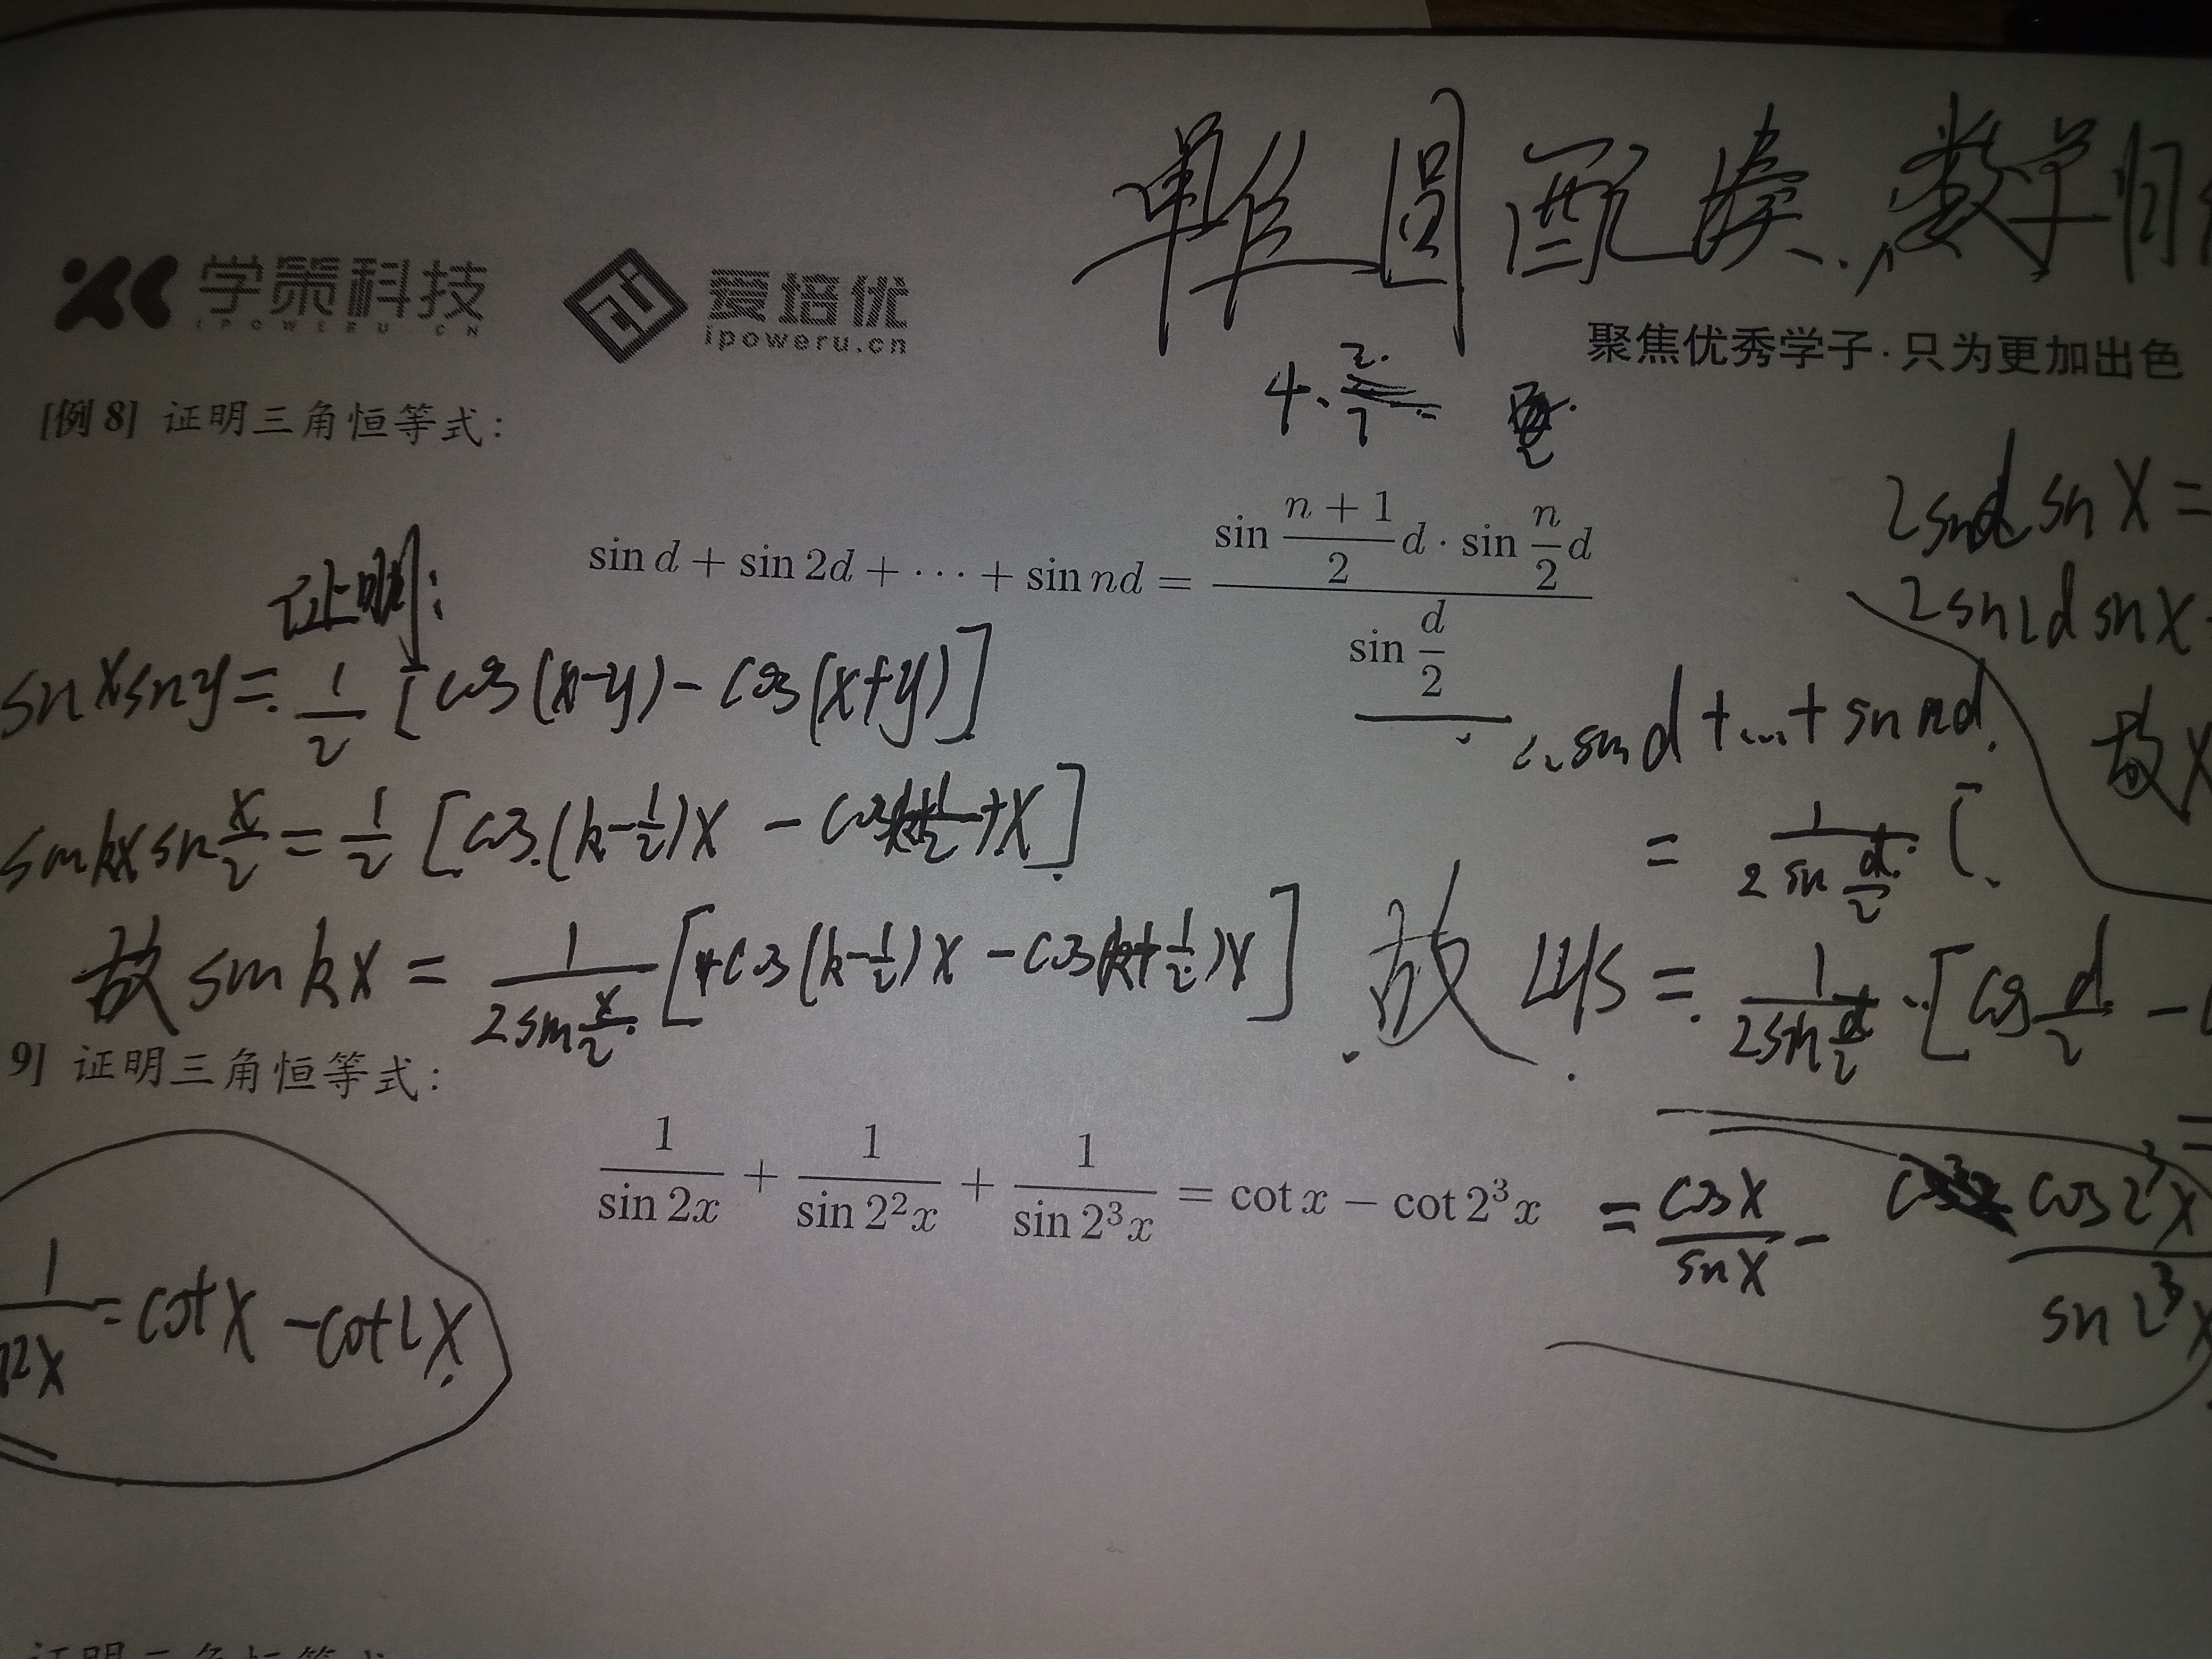 单位圆 配凑、数学归
学策科技
IPOWERU.CN
爱培优
ipoweru.cn
聚焦优秀学子·只为更加出色
4、
[例 8] 证明三角恒等式：
sin d + sin 2d + ··· + sin nd = \frac{sin \frac{n + 1}{2}d · sin \frac{n}{2}d}{sin \frac{d}{2}}
证明：
sinxsiny = \frac{1}{2}[cos(x-y) - cos(x+y)]
sinkxsin\frac{x}{2} = \frac{1}{2}[cos(k-\frac{1}{2})x - cos
故 sin kx = \frac{1}{2sin\frac{x}{2}}[cos(k-\frac{1}{2})x - cos(k+\frac{1}{2})x]
2sind sin x =
2sin2d sin x
故x
sin d + ... + sin nd
= \frac{1}{2 sin \frac{d}{2}} [
故 LHS = \frac{1}{2sin\frac{d}{2}} · [cos\frac{d}{2} -
=
9] 证明三角恒等式：
\frac{1}{sin 2x} + \frac{1}{sin 2²x} + \frac{1}{sin 2³x} = cot x − cot 2³x
= \frac{cos x}{sin x} - \frac{cos 2³x}{sin 2³x}
\frac{1}{n2x} = cot x - cot 2x
证明三角恒等式